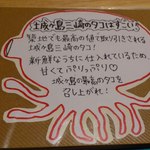 城ヶ島三崎のタコはすごい
築地でも最高の値で取り引きされる
城ヶ島のタコ!
新鮮なうちに仕入れているため
甘くてぷりっぷり♡
城ヶ島の最高のタコを
召し上がれ!